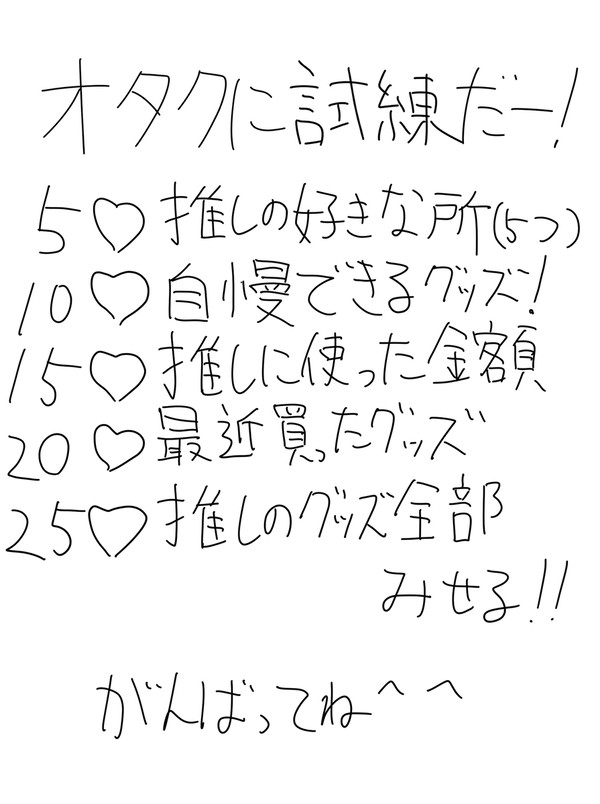 オタクに試練だー!
5♡推しの好きな所(5つ)
10♡自慢できるグッズ!
15♡推しに使った金額
20♡最近買ったグッズ
25♡推しのグッズ全部
みせる!!
がんばってね^^